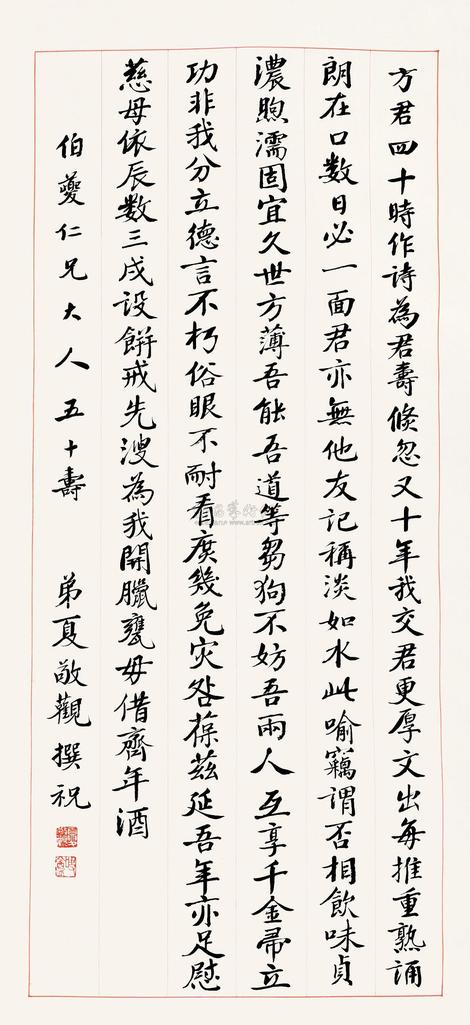 方君四十時作詩為君壽倏忽又十年我交君更厚文出每推重熟誦
朗在口數日必一面君亦無他友記稱淡如水此喻竊謂否相飲味貞
濃煦濡固宜久世方薄吾能吾道等芻狗不妨吾兩人互享千金帚立
功非我分立德言不朽俗眼不耐看庶幾免灾咎葆茲延吾年亦足慰
慈母依辰數三戌設餅戒先溲為我開臘甕毋借齊年酒
伯夔仁兄大人五十壽 弟夏敬觀撰祝